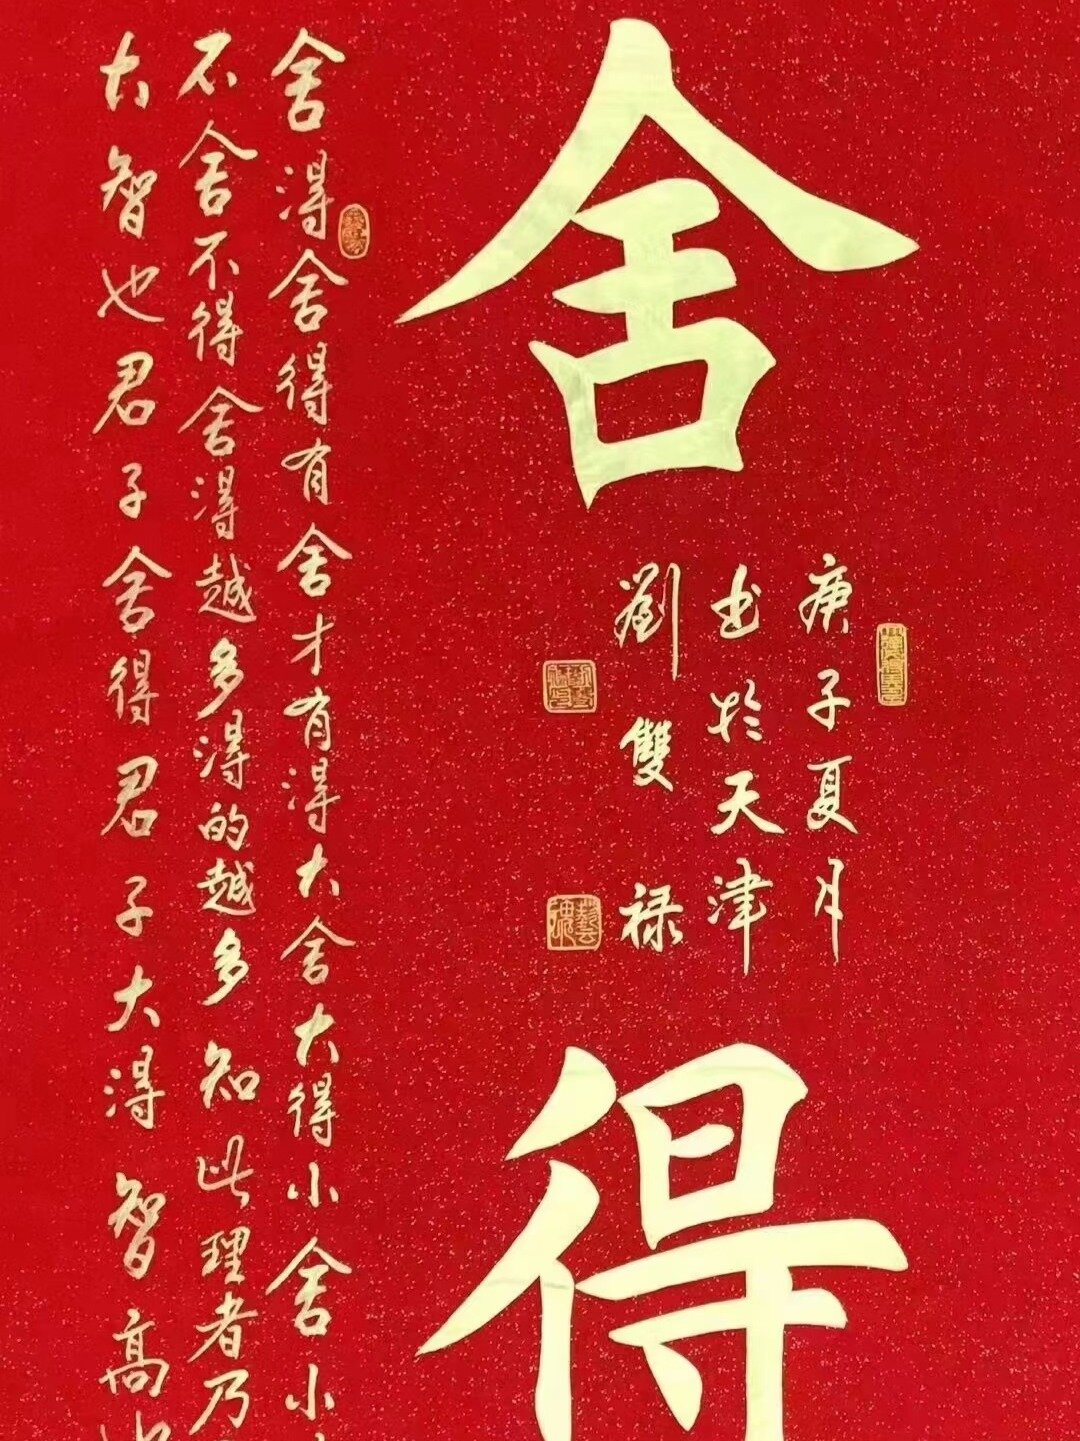 舍得
庚子夏月
书於天津
劉雙禄
舍得舍得有舍才有得大舍大得小舍小
不舍不得舍得越多得的越多知此理者乃
大智也君子舍得君子大得智高